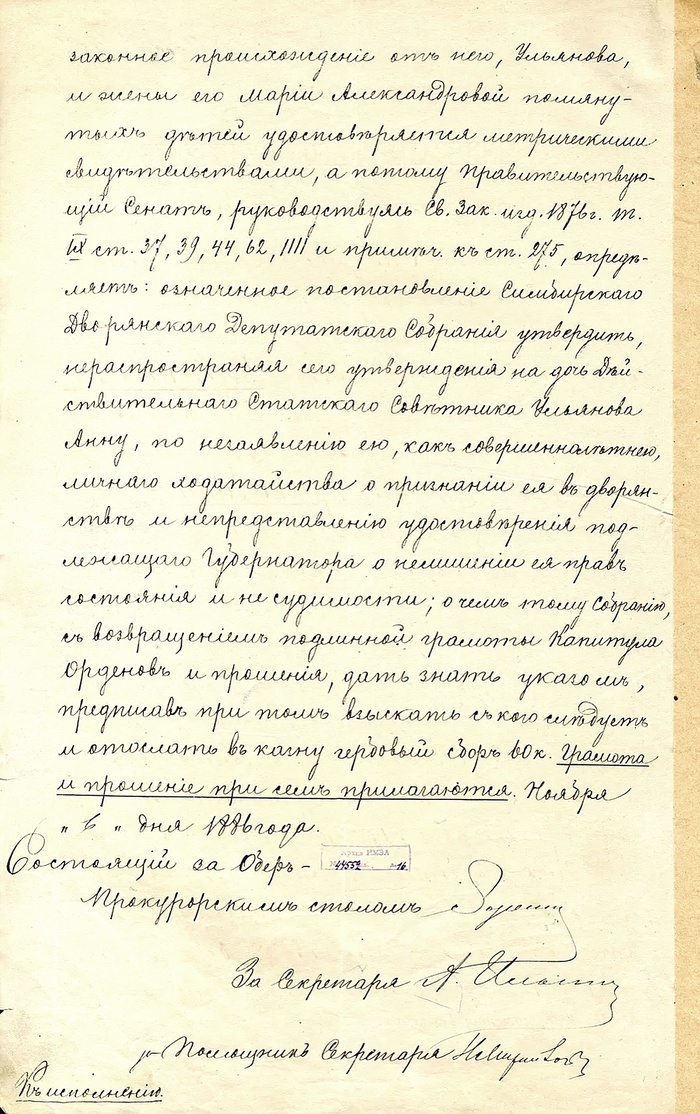 законное происхожденіе отъ него, Ульянова,
и жены его Маріи Александровой помяну-
тыхъ дѣтей удостовѣряется метрическими
свидѣтельствами, а потому Правительствую-
щій Сенатъ, руководствуясь Св. Зак. изд. 1876 г. т.
IX ст. 37, 39, 44, 62, 1111 и примѣч. къ ст. 275, опредѣ-
ляетъ: означенное постановленіе Симбирскаго
Дворянскаго Депутатскаго Собранія утвердить,
нераспространяя сего утвержденія на дочь Дѣй-
ствительнаго Статскаго Совѣтника Ульянова
Анну, по незаявленію ею, какъ совершеннолѣтнею,
личнаго ходатайства о признаніи ея въ дворян-
ствѣ и непредставленію удостовѣренія под-
лежащаго Губернатора о нелишеніи ея правъ
состоянія и не судимости; о чемъ тому Собранію,
съ возвращеніемъ подлинной грамоты Капитула
Орденовъ и прошенія, дать знать указомъ,
предписавъ при томъ взыскать съ кого слѣдуетъ
и отослать въ казну гербовый сборъ 80 к. Грамота
и прошеніе при семъ прилагаются. Ноября
" 6 " дня 1886 года.
Состоящій за Оберъ-
Прокурорскимъ столомъ
За Секретаря А.
Помощникъ Секретаря
Къ исполненію.